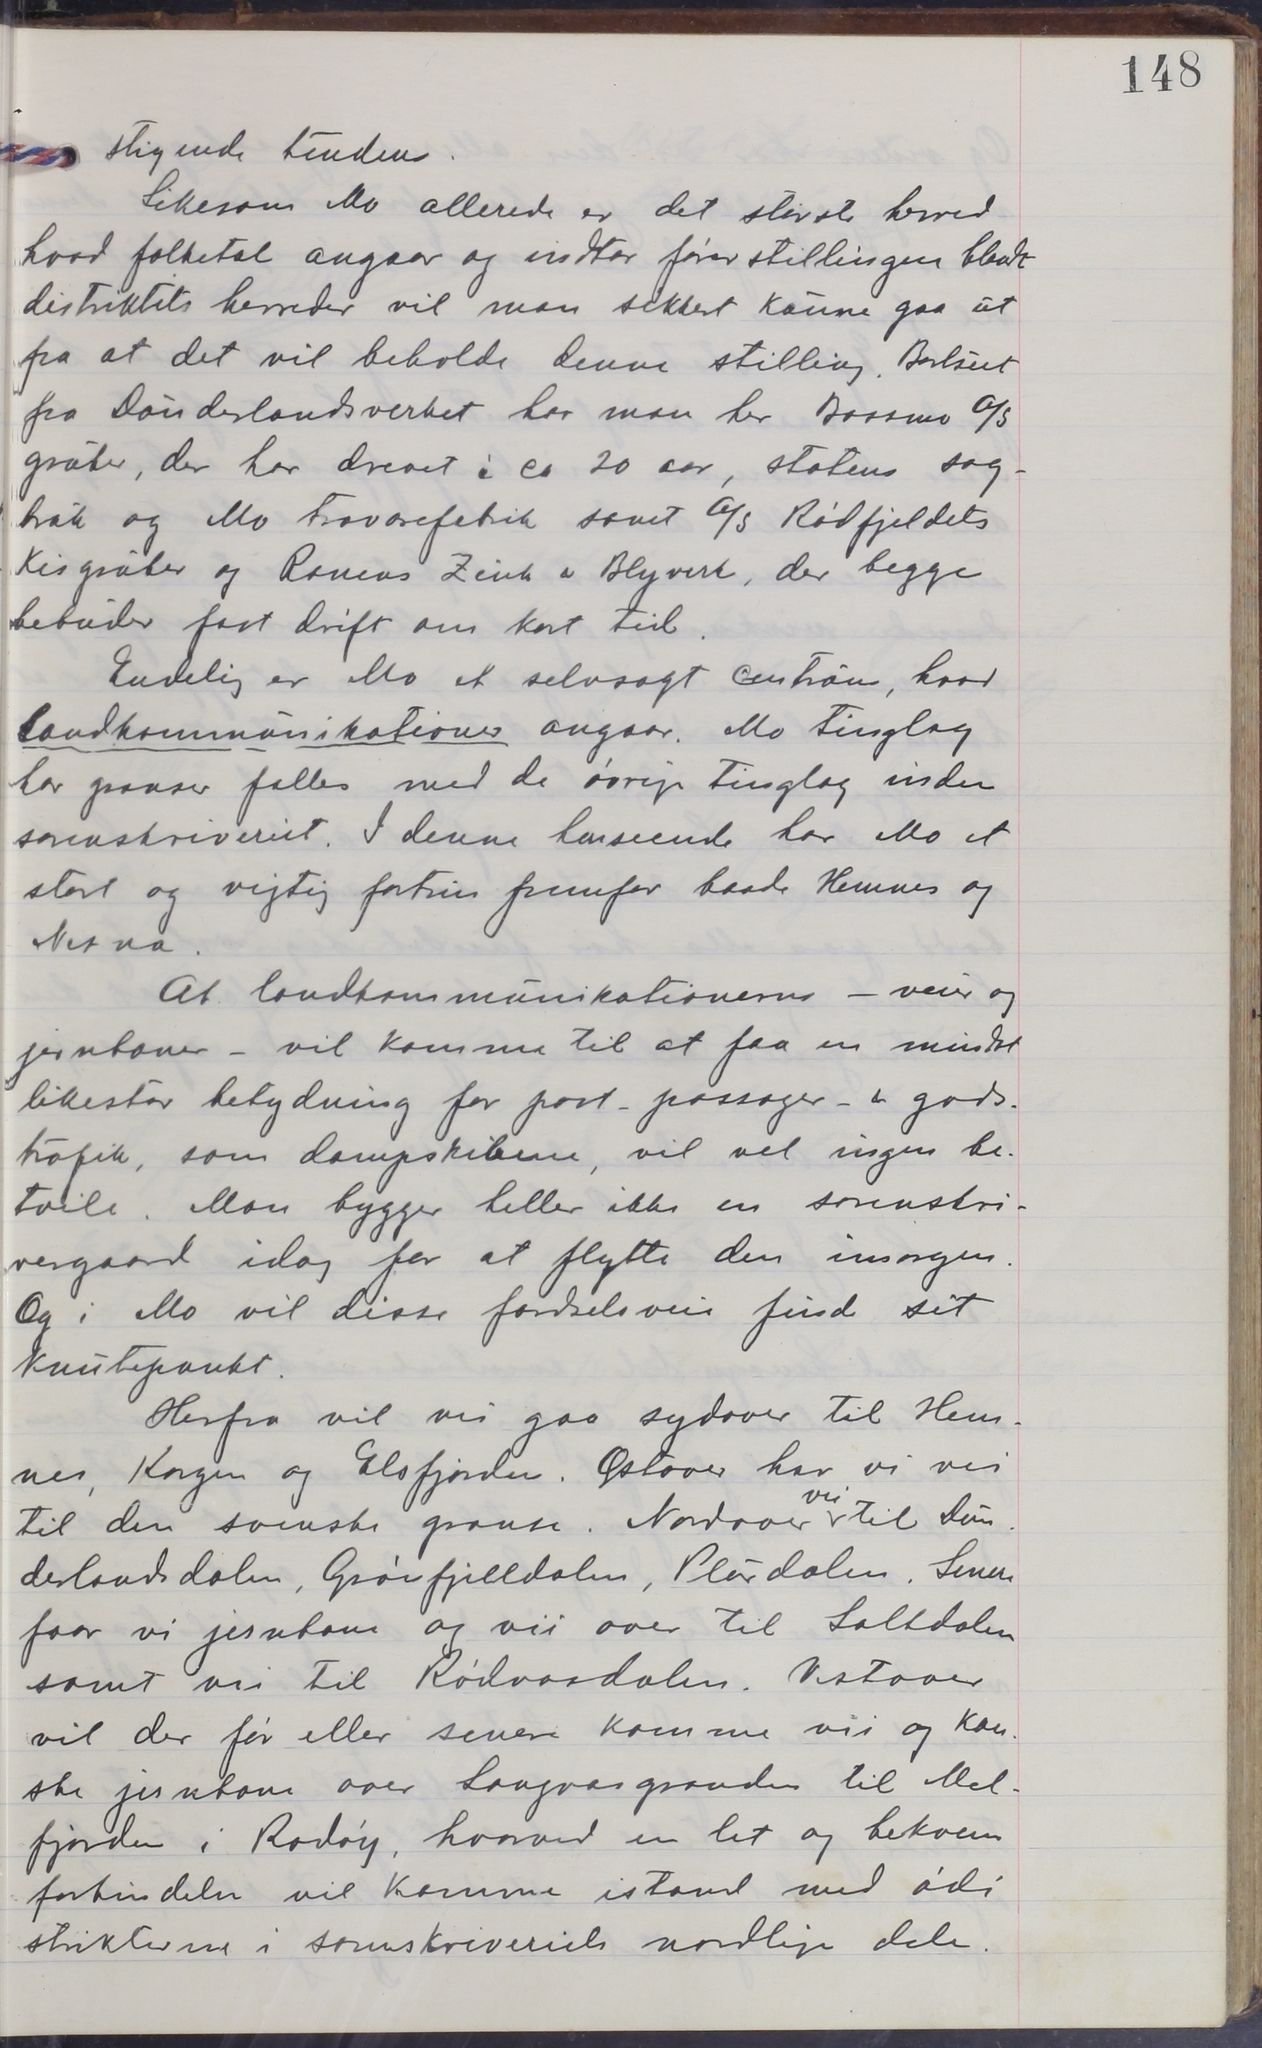 148
stigende tendens.
Likesom Mo allerede er det største herred
hvad folketal angaar og indtar førerstillingen blandt
distriktets herreder vil man sikkert kunne gaa ut
fra at det vil beholde denne stilling. Bortset
fra Dunderlandsverket har man her Bossmo A/S
gruber, der har drevet i ca 20 aar, statens sag-
bruk og Mo travarefabrik samt A/S Rødfjeldets
Kisgruber og Ranens Zink & Blyverk, der begge
bebuder fast drift om kort tid.
Endelig er Mo et selvsagt centrum, hvad
landkommunikationer angaar. Mo tinglag
har grænser fælles med de øvrige tinglag inden
sorenskriveriet. I denne henseende har Mo et
stort og vigtig fortrin fremfor baade Hemnes og
Nesna.
At landkommunikationerne – veier og
jernbaner – vil komme til at faa en mindst
likestor betydning for post- passager- & gods-
trafik, som dampskibene, vil vel ingen be-
tvile. Man bygger heller ikke en sorenskri-
vergaard idag for at flytte den imorgen.
Og i Mo vil disse færdselsveie finde sit
knutepunkt.
Herfra vil vei gaa sydover til Hem-
nes, Korgen og Elsfjorden. Østover har vi vei
til den svenske grænse. Nordover vei til Dun-
derlandsdalen, Grønfjelldalen, Plurdalen. Senere
faar vi jernbane og vei over til Saltdalen
samt vei til Rødvasdalen. Vestover
vil der før eller senere komme vei og kan-
ske jernbane over Langvasgrenden til Mel-
fjorden i Rødøy, hvorved en let og bekvem
forbindelse vil komme istand med ødi
strikterne i sorenskriveriets nordlige dele.